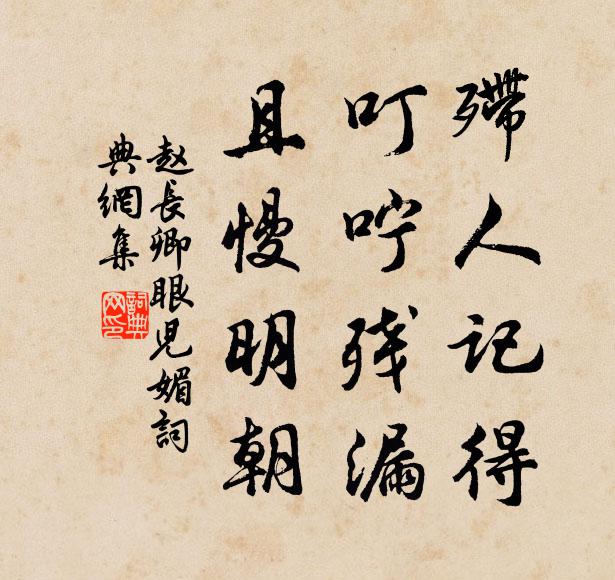 殢人记得
叮咛残漏
且慢明朝
赵長卿眼児媚詞
典網集
詞典网印